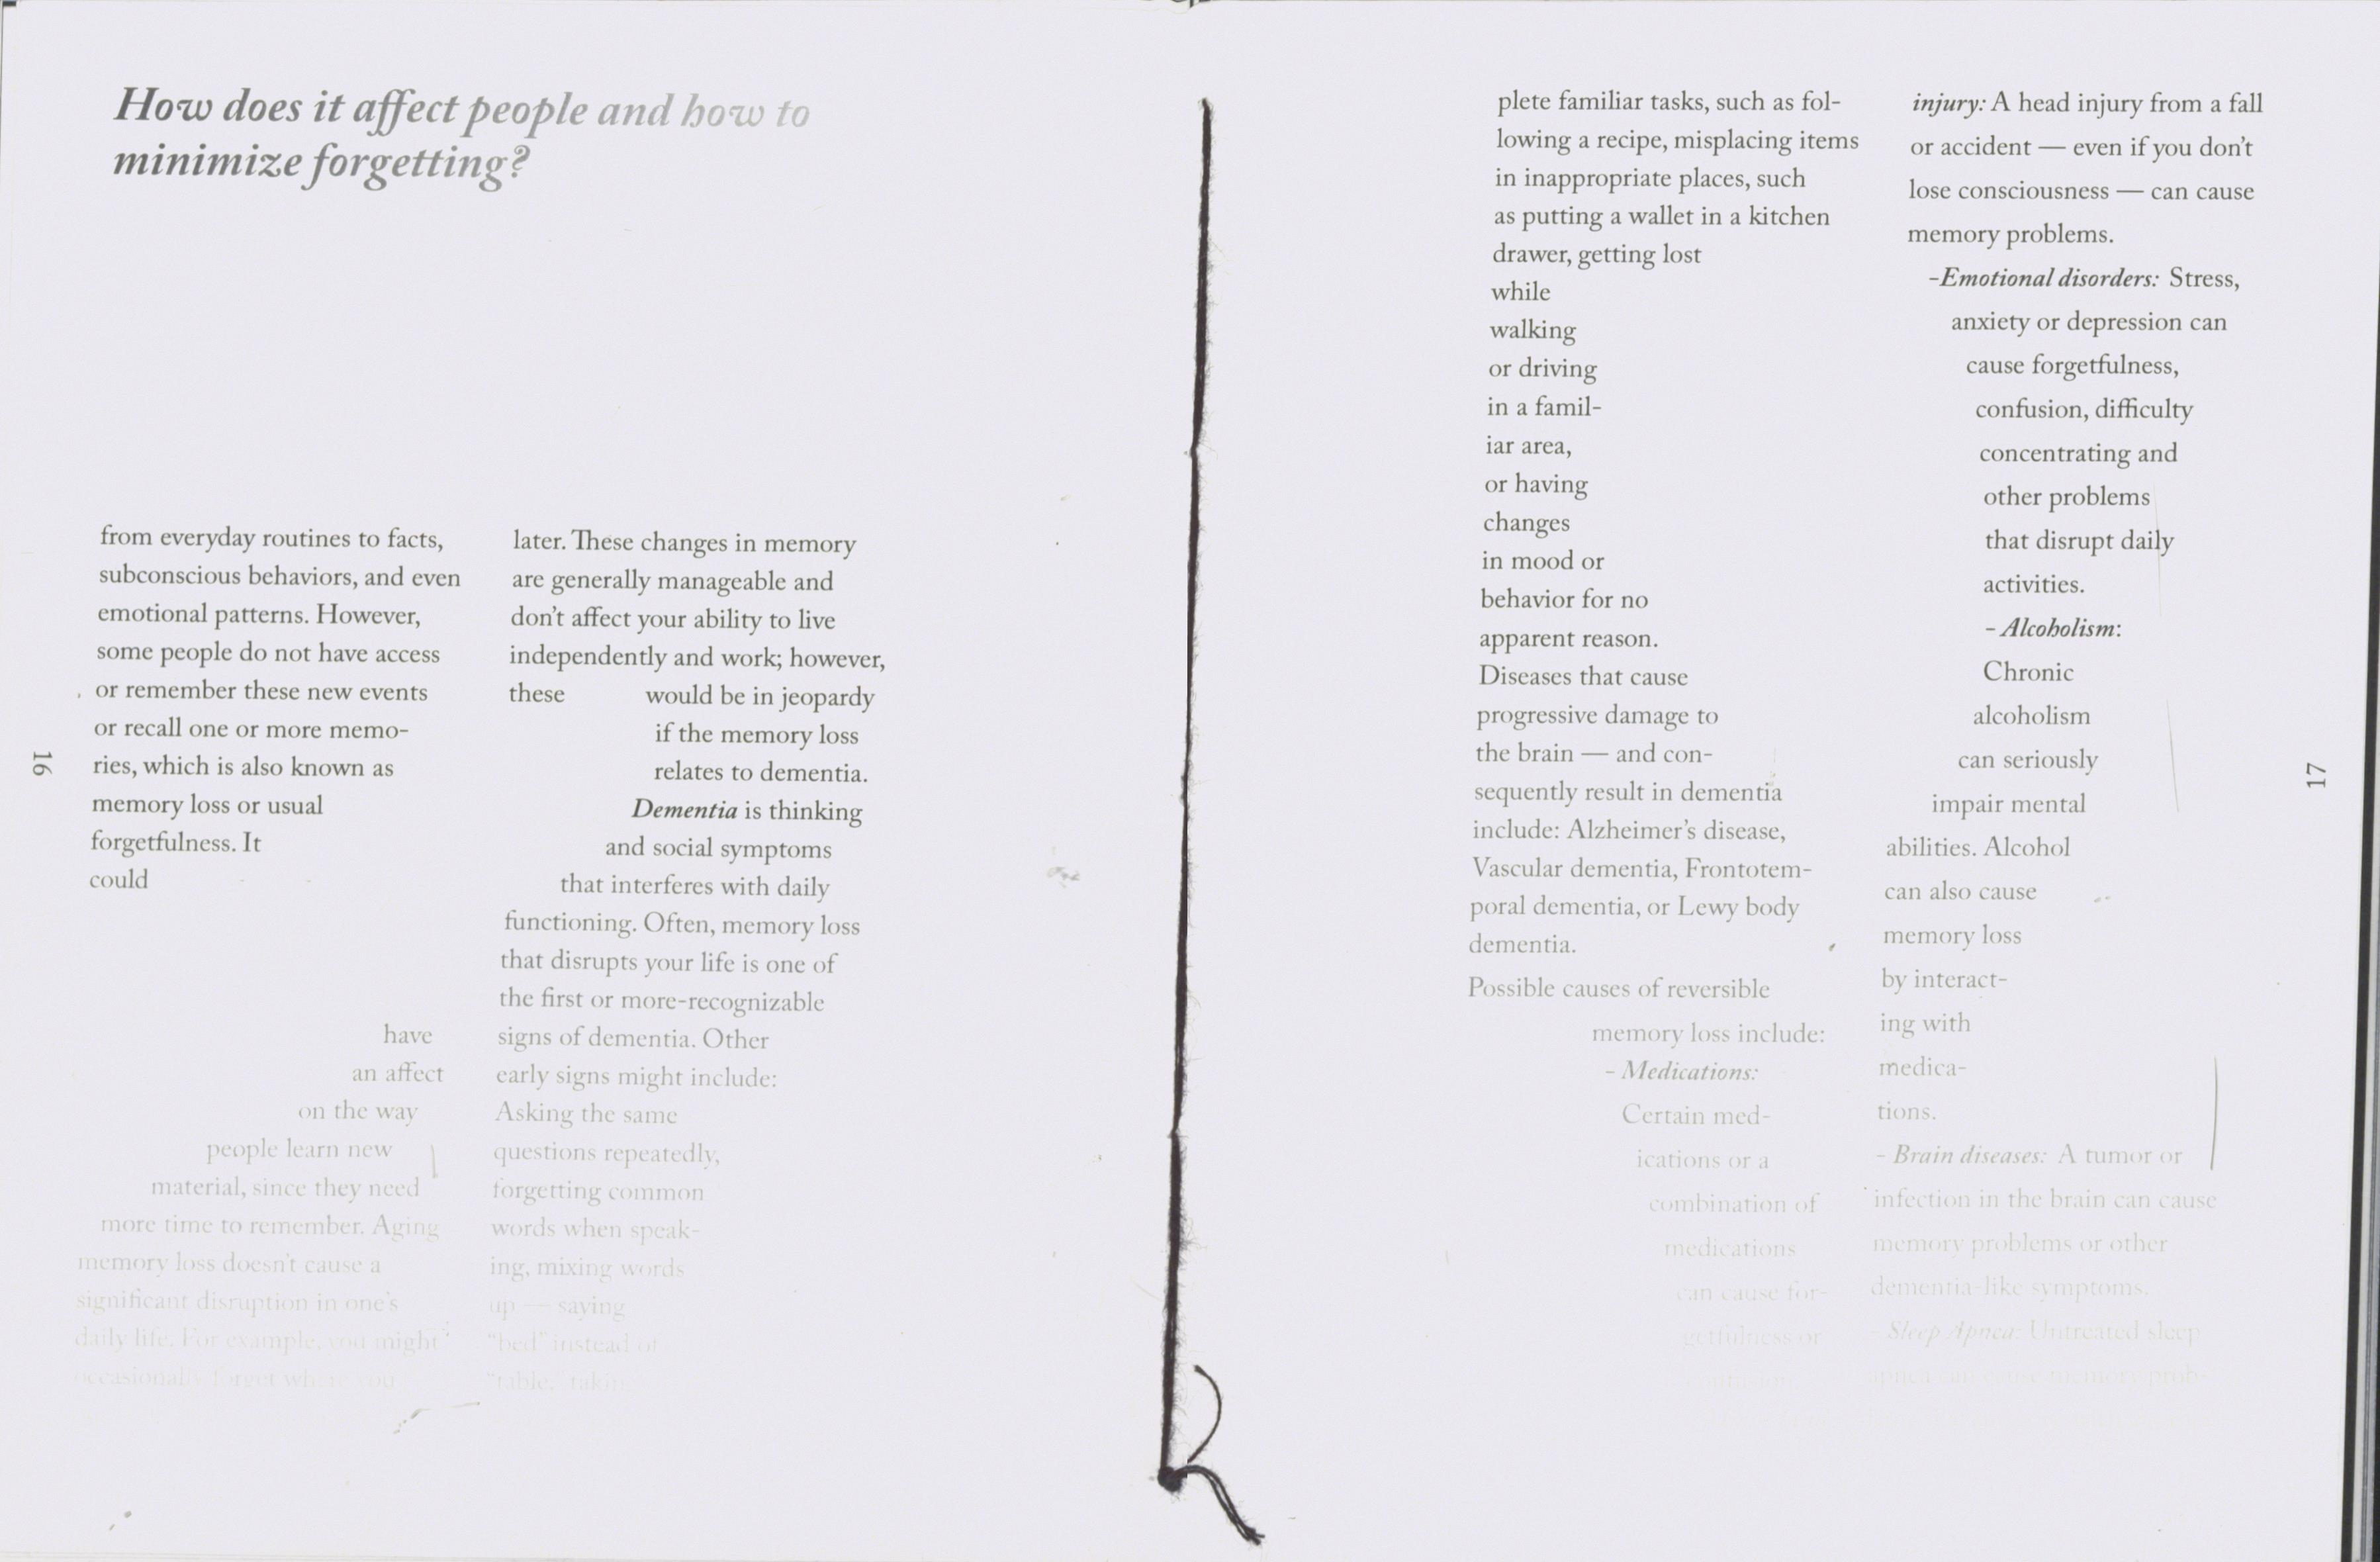 How does it affect people and how to
minimize forgetting?
from everyday routines to facts,
subconscious behaviors, and even
emotional patterns. However,
some people do not have access
or remember these new events
or recall one or more memo-
ries, which is also known as
memory loss or usual
forgetfulness. It
could
have
an affect
on the way
people learn new
material, since they need
more time to remember. Aging
memory loss doesn't cause a
significant disruption in one's
daily life. For example, you might
occasionally forget where you
later. These changes in memory
are generally manageable and
don't affect your ability to live
independently and work; however,
these would be in jeopardy
if the memory loss
relates to dementia.
Dementia is thinking
and social symptoms
that interferes with daily
functioning. Often, memory loss
that disrupts your life is one of
the first or more-recognizable
signs of dementia. Other
early signs might include:
Asking the same
questions repeatedly,
forgetting common
words when speak-
ing, mixing words
up — saying
"bed" instead of
"table,"
16
plete familiar tasks, such as fol-
lowing a recipe, misplacing items
in inappropriate places, such
as putting a wallet in a kitchen
drawer, getting lost
while
walking
or driving
in a famil-
iar area,
or having
changes
in mood or
behavior for no
apparent reason.
Diseases that cause
progressive damage to
the brain — and con-
sequently result in dementia
include: Alzheimer's disease,
Vascular dementia, Frontotem-
poral dementia, or Lewy body
dementia.
Possible causes of reversible
memory loss include:
- Medications:
Certain med-
ications or a
combination of
medications
can cause for-
getfulness or
injury: A head injury from a fall
or accident — even if you don't
lose consciousness — can cause
memory problems.
-Emotional disorders: Stress,
anxiety or depression can
cause forgetfulness,
confusion, difficulty
concentrating and
other problems
that disrupt daily
activities.
- Alcoholism:
Chronic
alcoholism
can seriously
impair mental
abilities. Alcohol
can also cause
memory loss
by interact-
ing with
medica-
tions.
- Brain diseases: A tumor or
infection in the brain can cause
memory problems or other
dementia-like symptoms.
- Sleep Apnea: Untreated sleep
apnea can cause memory prob-
17